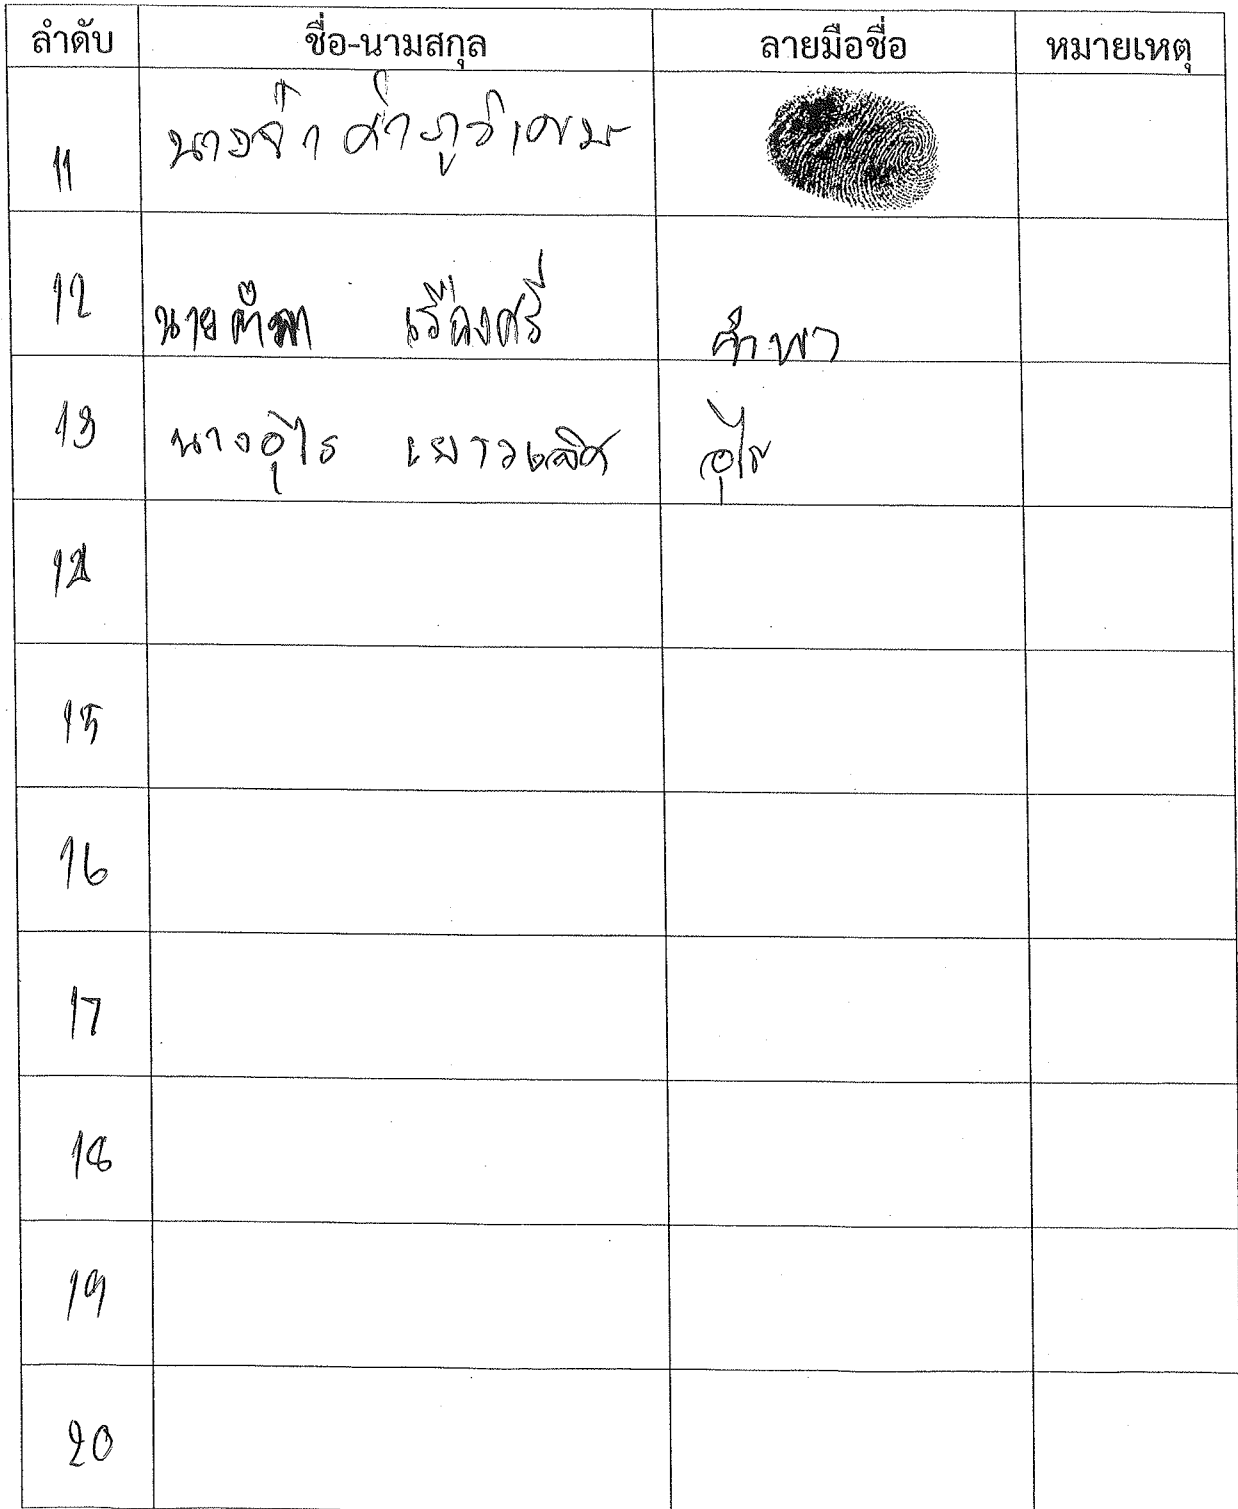 ลำดับ ชื่อ-นามสกุล ลายมือชื่อ หมายเหตุ
11 นางจำ คำภูวิเศษ
12 นายคำพา เรืองศรี คำพา
13 นางอุไร เยาวเลิศ อุไร
14
15
16
17
18
19
20